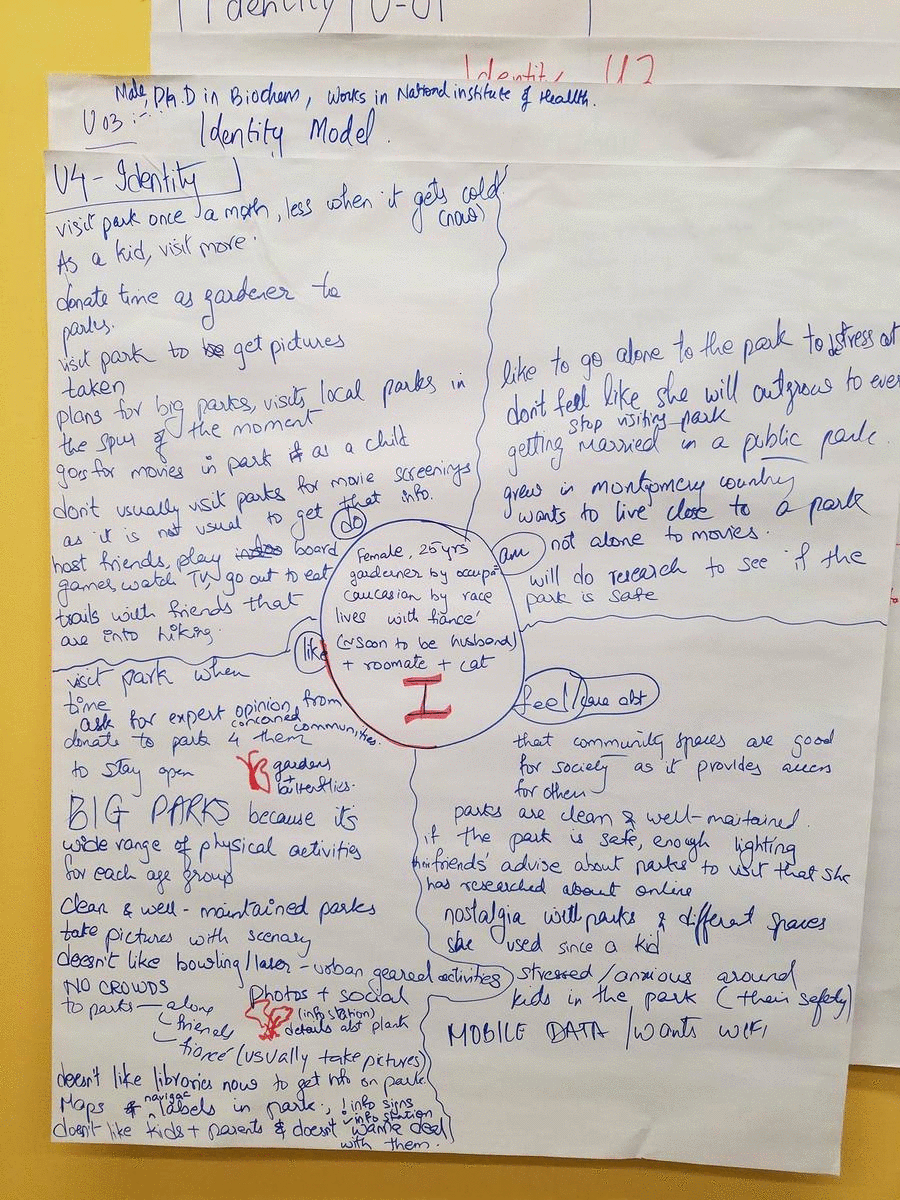 Identity U-01
Identity U2
Male, Ph.D in Biochem, works in National institute of Health.
U03 :-
Identity Model.
U4 - Identity
visit park once a month, less when it gets cold
(now)
As a kid, visit more.
donate time as gardener to
parks.
visit park to get pictures
taken
plans for big parks, visits local parks in
the spur of the moment
goes for movies in park as a child
don't usually visit parks for movie screenings
as it is not usual to get that info.
host friends, play board
games, watch TV, go out to eat
trails with friends that
are into hiking.
do
like to go alone to the park to destress out
don't feel like she will outgrow to ever
stop visiting park
getting married in a public park.
grew in montgomery country
wants to live close to a park
am
not alone to movies.
will do research to see if the
park is safe
Female, 25yrs
gardener by occupa
caucasian by race
lives with fiancé
(soon to be husband)
+ roomate + cat
I
like
visit park when
time
ask for expert opinion from
concerned communities.
donate to park 4 them
to stay open
gardens
+
butterflies.
BIG PARKS because it's
wide range of physical activities
for each age group
clean & well-maintained parks
take pictures with scenary
doesn't like bowling/laser-urban geared activities
NO CROWDS
to parks — alone
friends
fiancé (usually take pictures)
Photos + social
(info station)
details abt plant
doesn't like libraries now to get info on park.
Maps navigac labels in park, ! info signs
info station
doesn't like kids + parents & doesn't wanna deal
with them.
feel/care abt
that community spaces are good
for society as it provides access
for others
parks are clean & well-maintained.
if the park is safe, enough lighting
their friends' advise about parks to visit that she
has researched about online
nostalgia with parks & different spaces
she used since a kid
stressed/anxious around
kids in the park (their safety)
MOBILE DATA /wants wifi